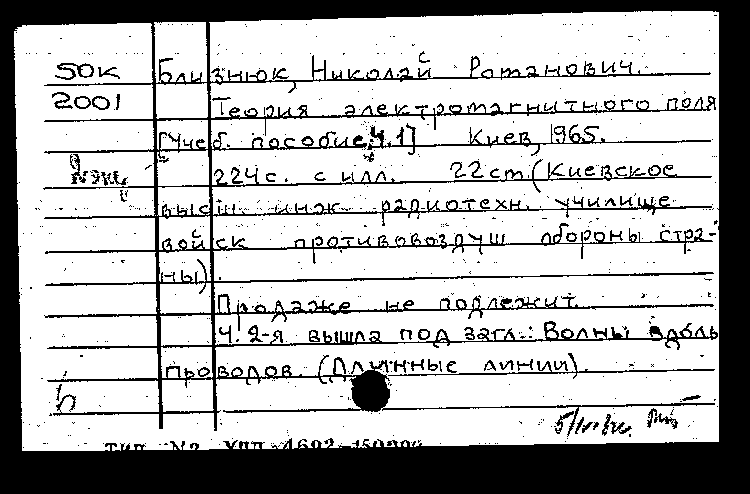 50К Близнюк, Николай Ротанович.
2001 Теория электромагнитного поля
[Учеб. пособие. Ч.1] Киев, 1965.
224 с. с илл. 22 cm (Киевское
высш. инж. радиотехн. училище
войск противовоздуш обороны стра-
ны).
Продаже не подлежит.
Ч. 2-я вышла под загл.: Волны вдоль
проводов. (Длинные линии).